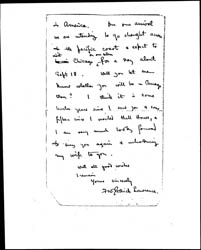 in America. On our arrival
we are intending to go straight across
to the pacific coast & expect to
visit Chicago, for a day about
Sept 18. Will you let me
know whether you will be in Chicago
then? I think it is some
twelve years since I met you & some
fifteen since I visited Hull House, &
I am very much looking forward
to seeing you again & introducing
my wife to you.
With all good wishes
I remain
Yours sincerely
F W Pethick Lawrence.